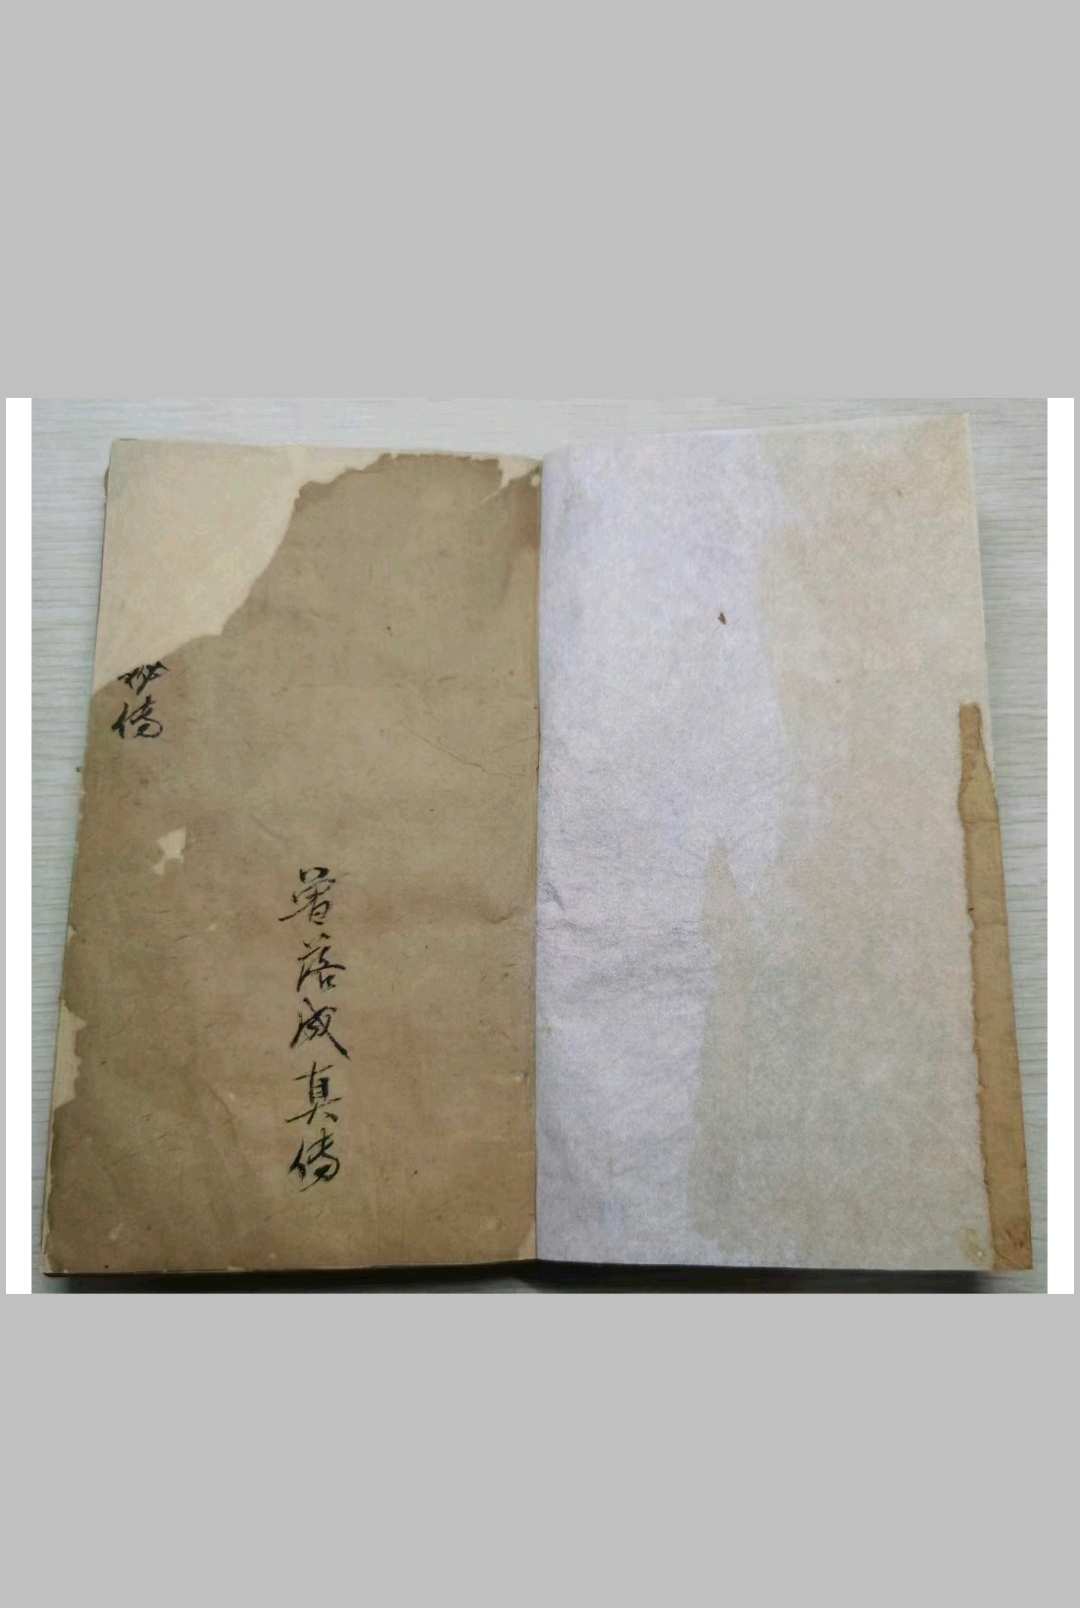 曾落成真傳
秘傳